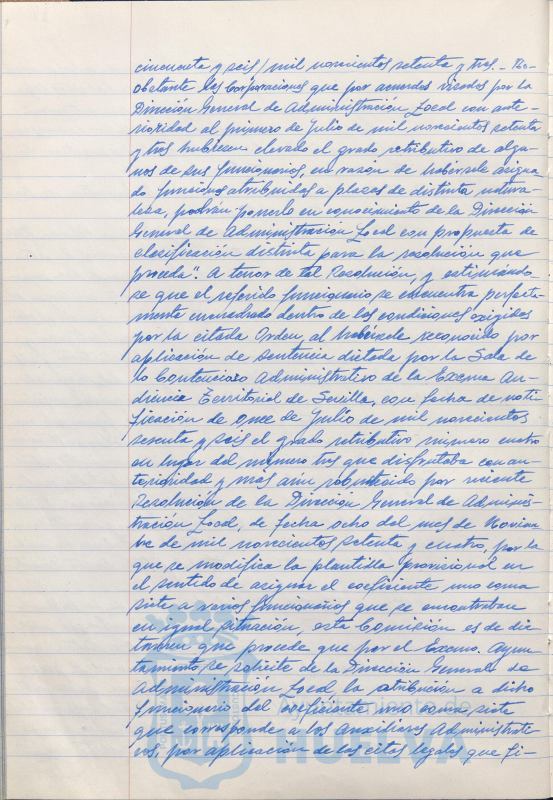 cincuenta y seis/mil novecientos setenta y tres.- No
obstante las Corporaciones que por acuerdos visados por la
Dirección General de Administración Local con ante-
rioridad al primero de Julio de mil novecientos setenta
y tres hubiesen elevado el grado retributivo de algu-
nos de sus funcionarios, en razón de habérsele asigna
do funciones atribuidas a plazas de distinta natura-
leza, podrán ponerlo en conocimiento de la Dirección
General de Administración Local con propuesta de
clasificación distinta para la resolución que
proceda". A tenor de tal Resolución, y estimándo-
se que el referido funcionario se encuentra perfecta-
mente encuadrado dentro de las condiciones exigidas
por la citada Orden, al habérsele reconocido por
aplicación de sentencia dictada por la Sala de
lo Contencioso Administrativo de la Excma Au-
diencia Territorial de Sevilla, con fecha de noti-
ficación de once de Julio de mil novecientos
sesenta y seis el grado retributivo número cuatro
en lugar del número tres que disfrutaba con an-
terioridad y mas aun robustecido por reciente
Resolución de la Dirección General de Adminis-
tración Local, de fecha ocho del mes de Noviem
bre de mil novecientos setenta y cuatro, por la
que se modifica la plantilla provisional en
el sentido de asignar el coeficiente uno coma
siete a varios funcionarios que se encontraban
en igual situación, esta Comisión es de dic-
tamen que procede que por el Excmo. Ayun-
tamiento se solicite de la Dirección General de
Administración Local la atribución a dicho
funcionario del coeficiente uno coma siete
que corresponde a los Auxiliares Administrati-
vos, por aplicación de las citas legales que fi-
HUELVA